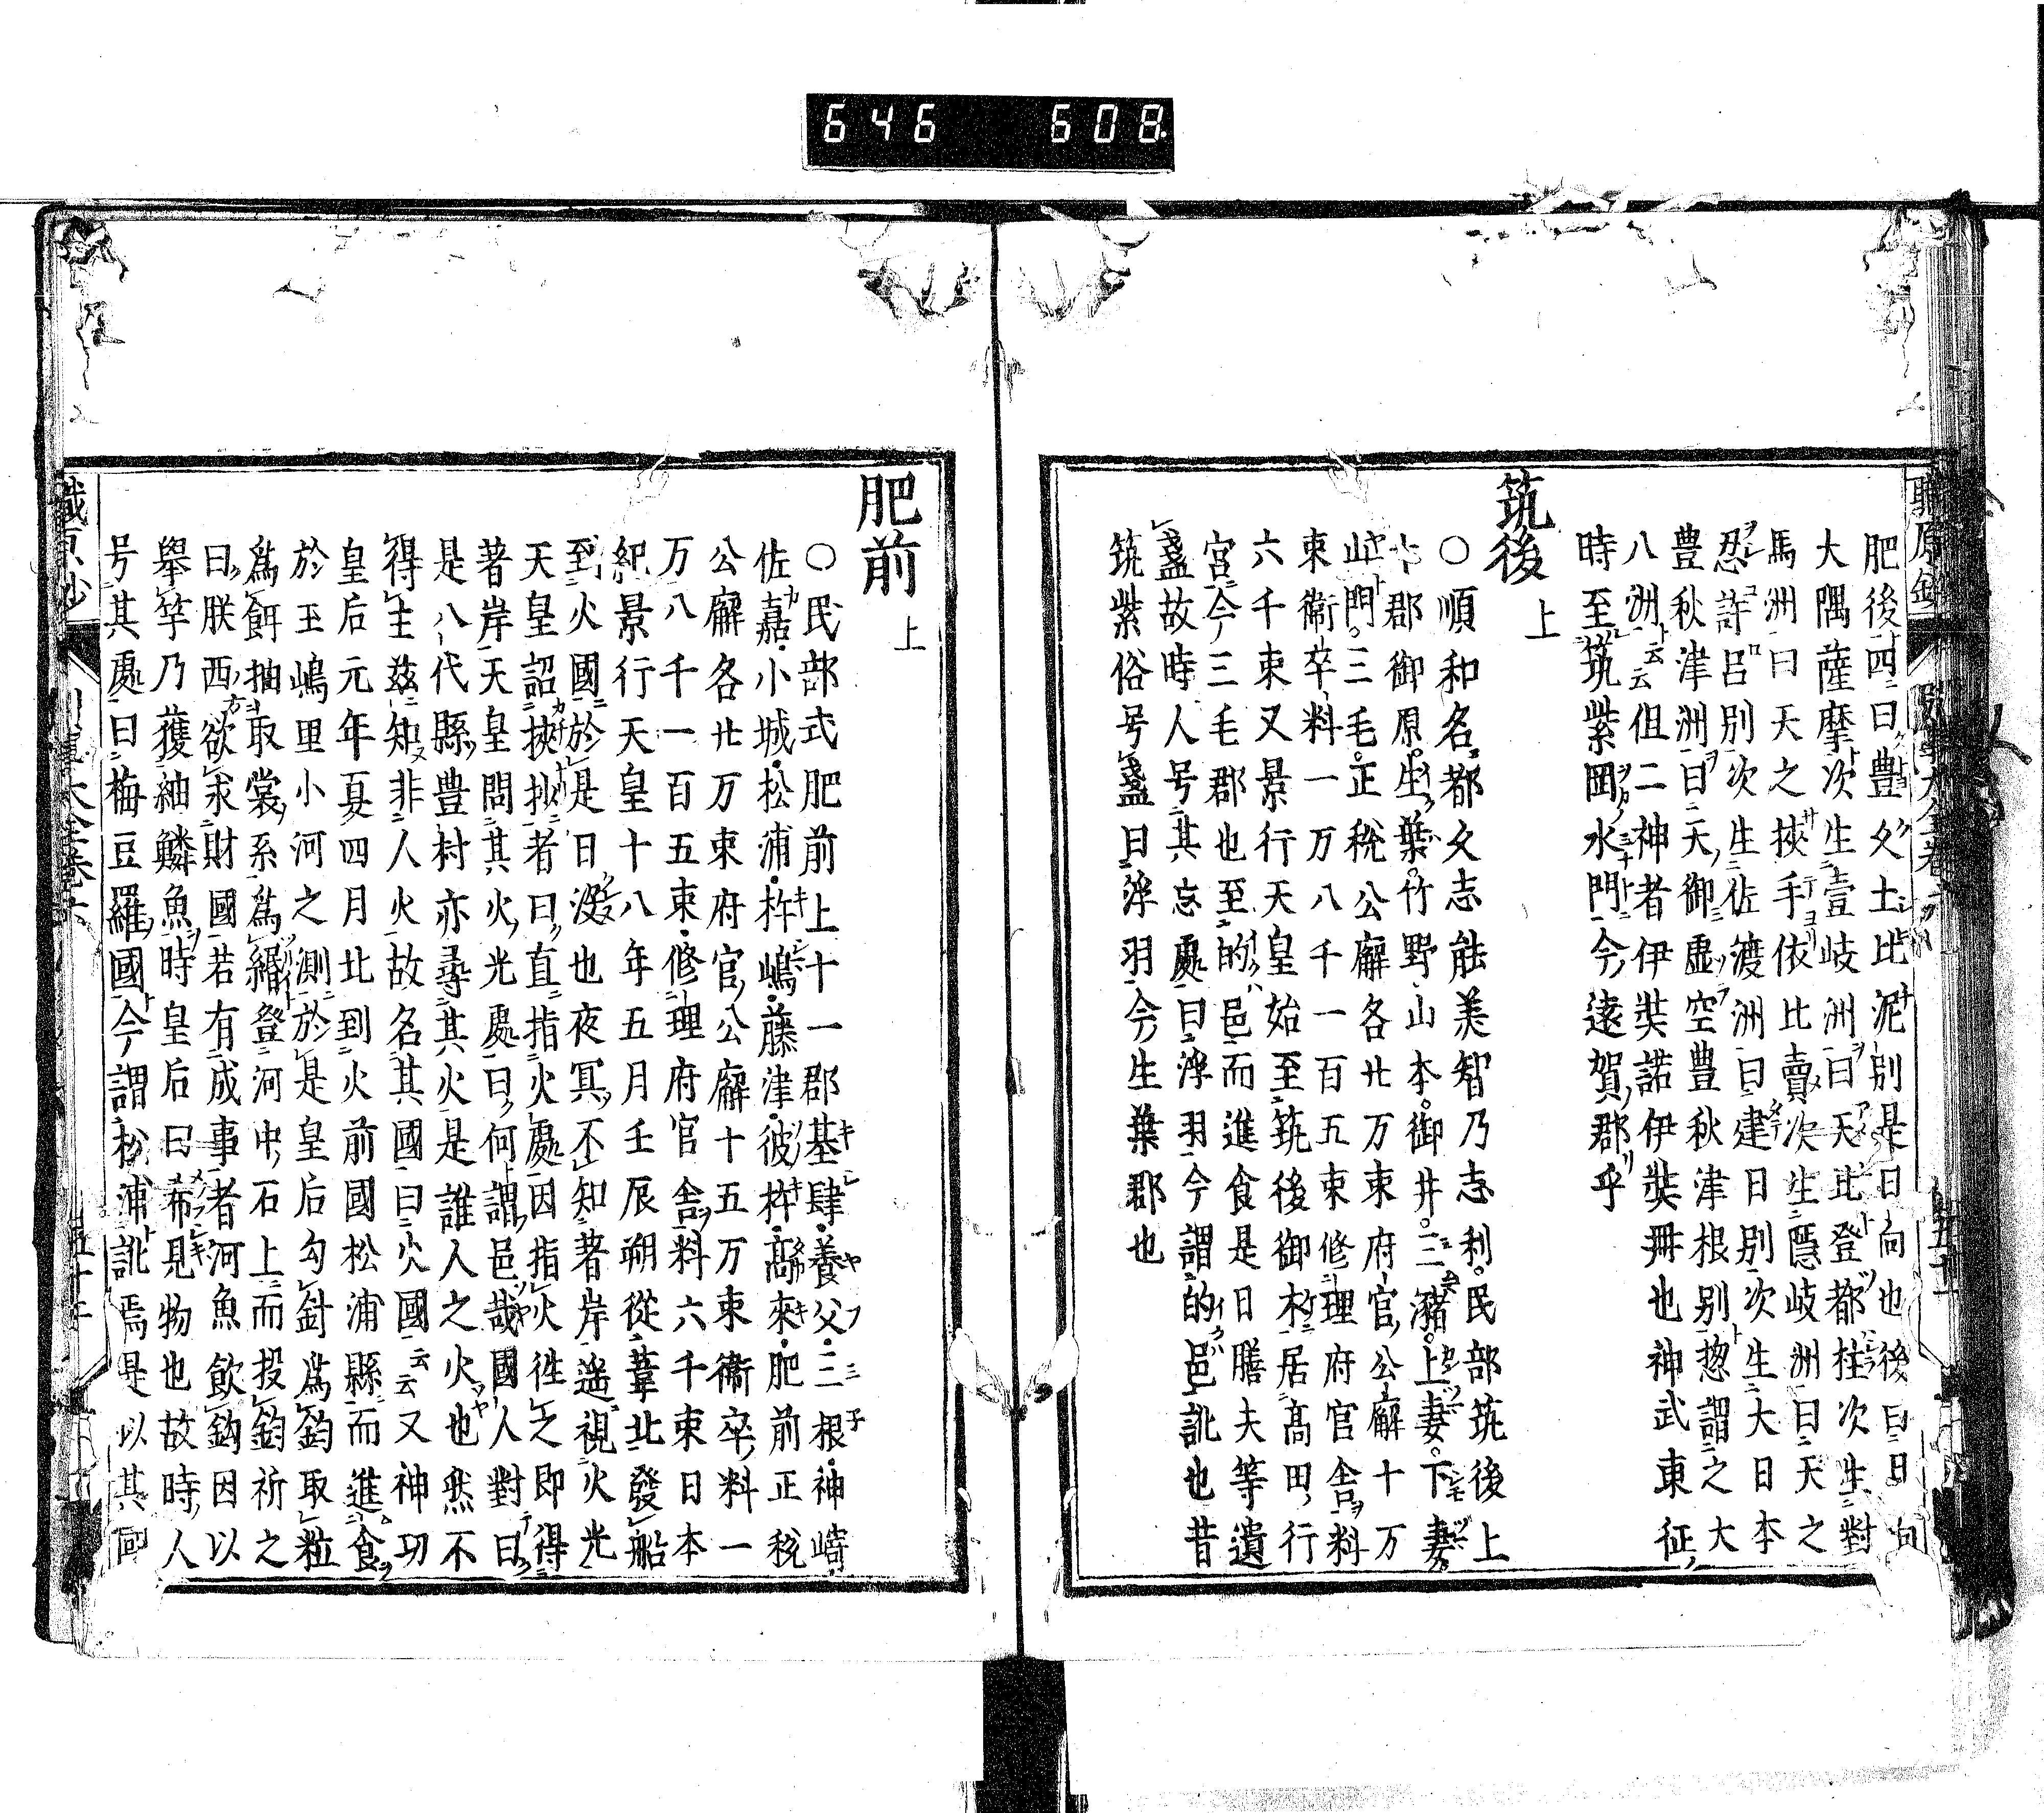 646 608
肥後四曰豊久士比泥別是日向也後曰日向
大隅薩摩次生壹岐洲曰天比登都柱次生對
馬洲曰天之挾手依比賣次生隱岐洲曰天之
忍許呂別次生佐渡洲曰建日別次生大日本
豊秋津洲曰天御虛空豊秋津根別揔謂之大
八洲云云伹二神者伊奘諾伊奘冊也神武東征
時至筑紫岡水門今遠賀郡乎
筑後上
○順和名都久志能美智乃志利民部筑後上
十郡御原生葉竹野山本御井三瀦上妻下妻
山門三毛正稅公廨各廿万束府官公廨十万
束衞卒料一万八千一百五束修理府官舎料
六千束又景行天皇始至筑後御木居髙田行
宮今三毛郡也至的邑而進食是日膳夫等遺
盞故時人号其忘處曰浮羽今謂的邑訛也昔
筑紫俗号盞曰浮羽今生葉郡也
肥前上
○民部式肥前上十一郡基肆養父三根神﨑
佐嘉小城松浦杵嶋藤津彼杵髙來肥前正税
公廨各廿万束府官公廨十五万束衞卒料一
万八千一百五束修理府官舎料六千束日本
紀景行天皇十八年五月壬辰朔從葦北發船
到火國於是日没也夜冥不知著岸遥視火光
天皇詔挾抄者曰直指火處因指火徃之即得
著岸天皇問其火光處曰何謂邑哉國人對曰
是八代縣豊村亦尋其火是誰人之火也然不
得主茲知非人火故名其國曰火國云云又神功
皇后元年夏四月北到火前國松浦縣而進食
於玉嶋里小河之測於是皇后勾針爲鈎取粒
爲餌抽取裳糸爲緡登河中石上而投鈎祈之
曰朕西欲求財國若有成事者河魚飲鈎因以
舉竿乃獲細鱗魚時皇后曰希見物也故時人
号其處曰梅豆羅國今謂松浦訛焉是以其國